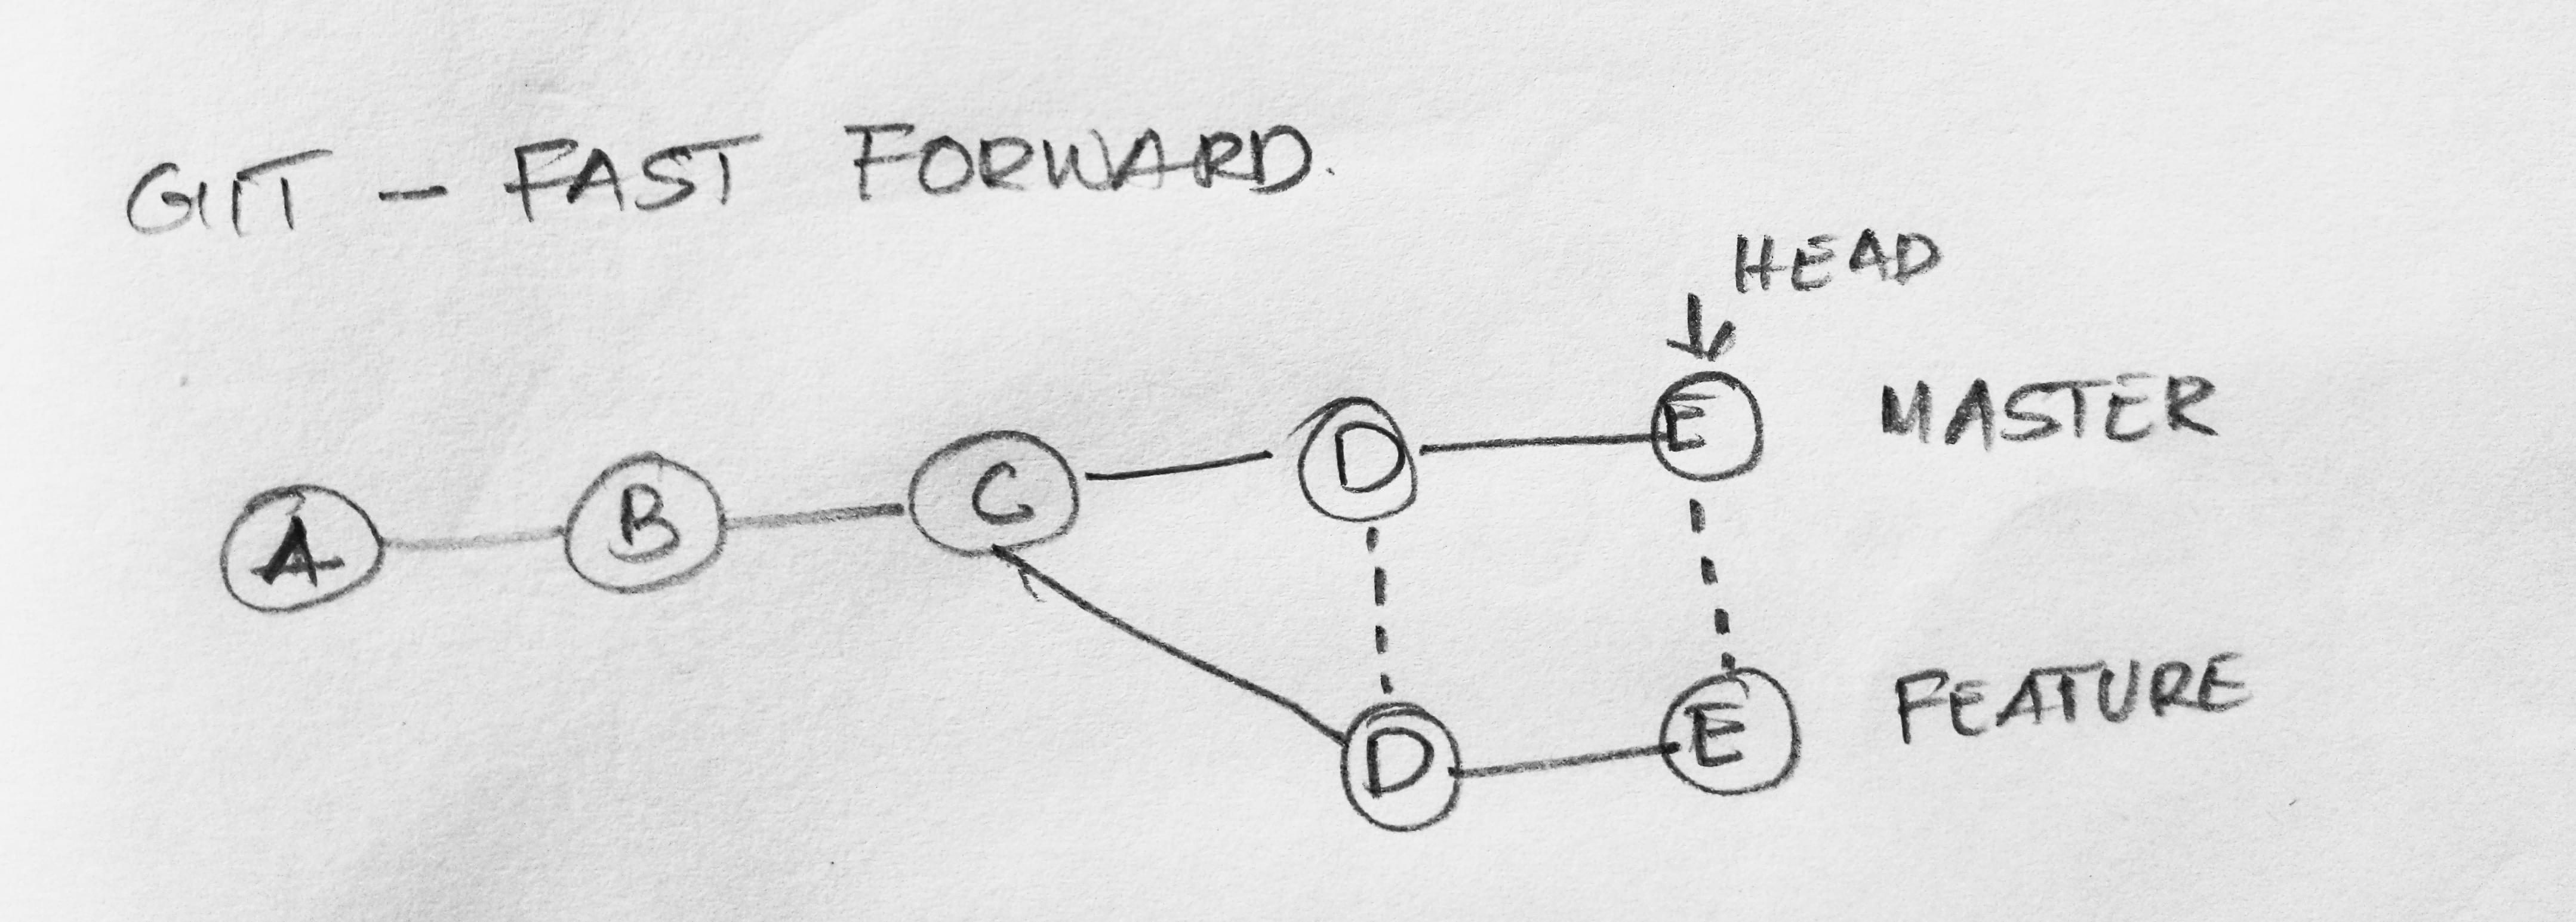 GIT - FAST FORWARD.
HEAD
A B C D E MASTER
D E FEATURE